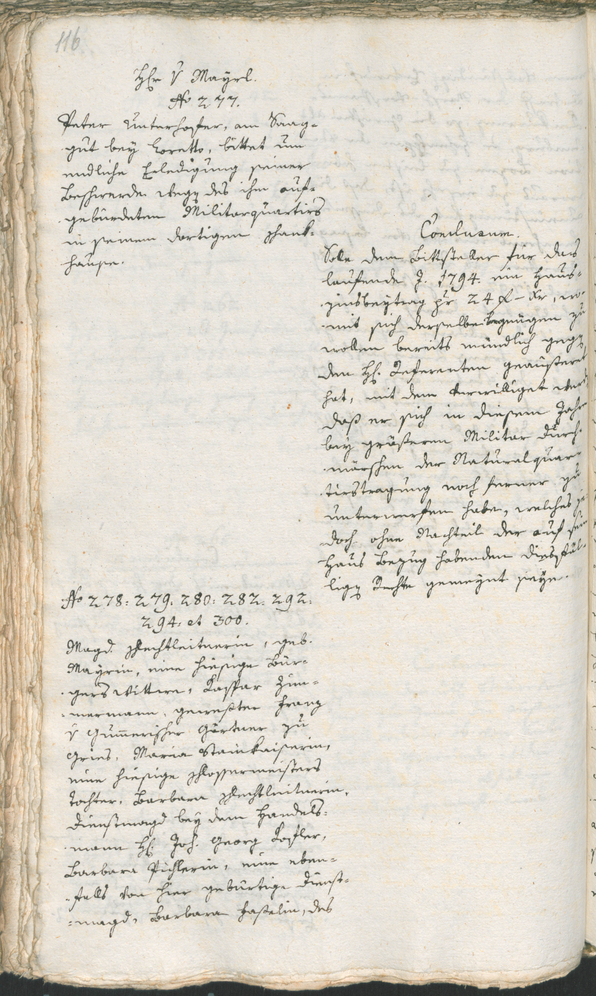 116.
Hr v Mayrl.
No 277.
Peter Unterhofer, am Saag-
gut bey Loretto, bittet um
endliche Erledigung seiner
Beschwerde wegen des ihm auf-
gebürdeten Militarquartirs
in seinem dortigen Schank-
hause.
Conclusum.
Solle dem Bittsteller für das
laufende J. 1794. ein Haus-
zinsbeytrag pr 24 f – Xr, wo-
mit sich derselbe begnügen zu
wollen bereits mündlich gegen
den H. Referenten geäußert
hat, mit dem verwilliget werden
daß er sich in diesem Jahr
bey größeren Militar Durch-
märschen der Naturalquar-
tirstragung noch ferner zu
unterwerfen habe, welches je-
doch ohne Nachteil der auf sein
Haus Bezug habenden diesfäl-
ligen Rechte gemeynt seye.
No 278. 279. 280. 282. 292.
294. et 300.
Magd. Plechtleitnerin, geb.
Mayrin, eine hiesige Bür-
gers Wittwe, Kaspar Zim-
mermann, gewester Franz
v Gumerischer Gärtner zu
Gries, Maria Stainkaiserin,
eine hiesige Schlossermeisters
Tochter, Barbara Plechtleitnerin,
Dienstmagd bey dem Handels-
mann H. Joh. Georg Kofler,
Barbara Pichlerin, eine eben-
falls von hier gebürtige Dienst-
magd, Barbara Haselin, des